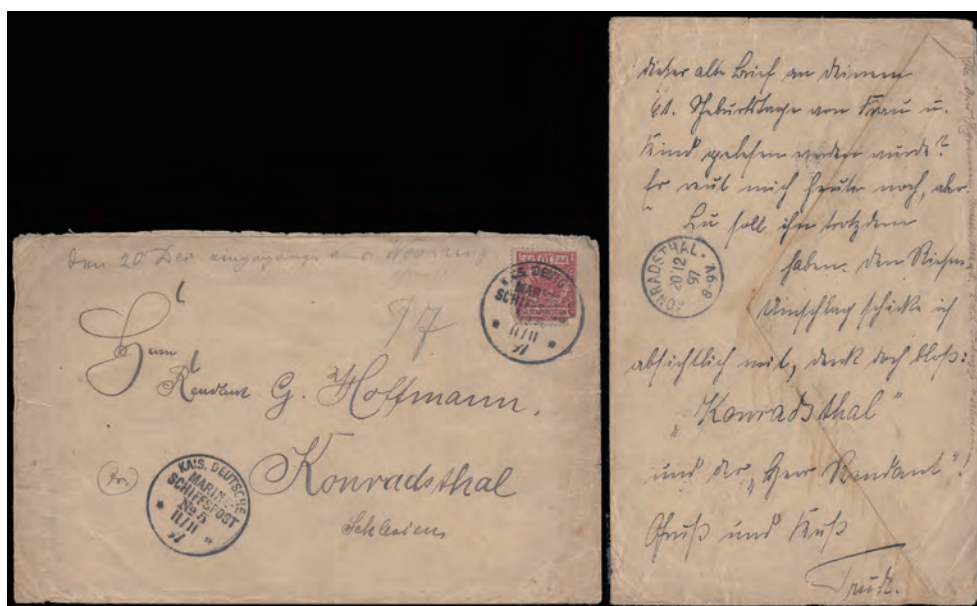 Den 20 Dez eingegangen aus Woosung
97
KAIS. DEUTSCHE
MARINE-
SCHIFFSPOST
11/11
97
Herrn
Rendant G. Hoffmann.
Konradsthal
Schlesien
KAIS. DEUTSCHE
MARINE-
SCHIFFSPOST
No 5
11/11
97
dieser alte Brief an Deinem
61. Geburtstage von Frau u.
Kind gelesen werden würde?
Er reut mich heute noch, aber
Lu soll ihn trotzdem
haben. Den
Umschlag schicke ich
absichtlich mit, denk doch bloß:
"Konradsthal"
und der "Herr Rendant"!
Gruß und Kuß
Trude.
KONRADSTHAL.
20 12
97
6-8N